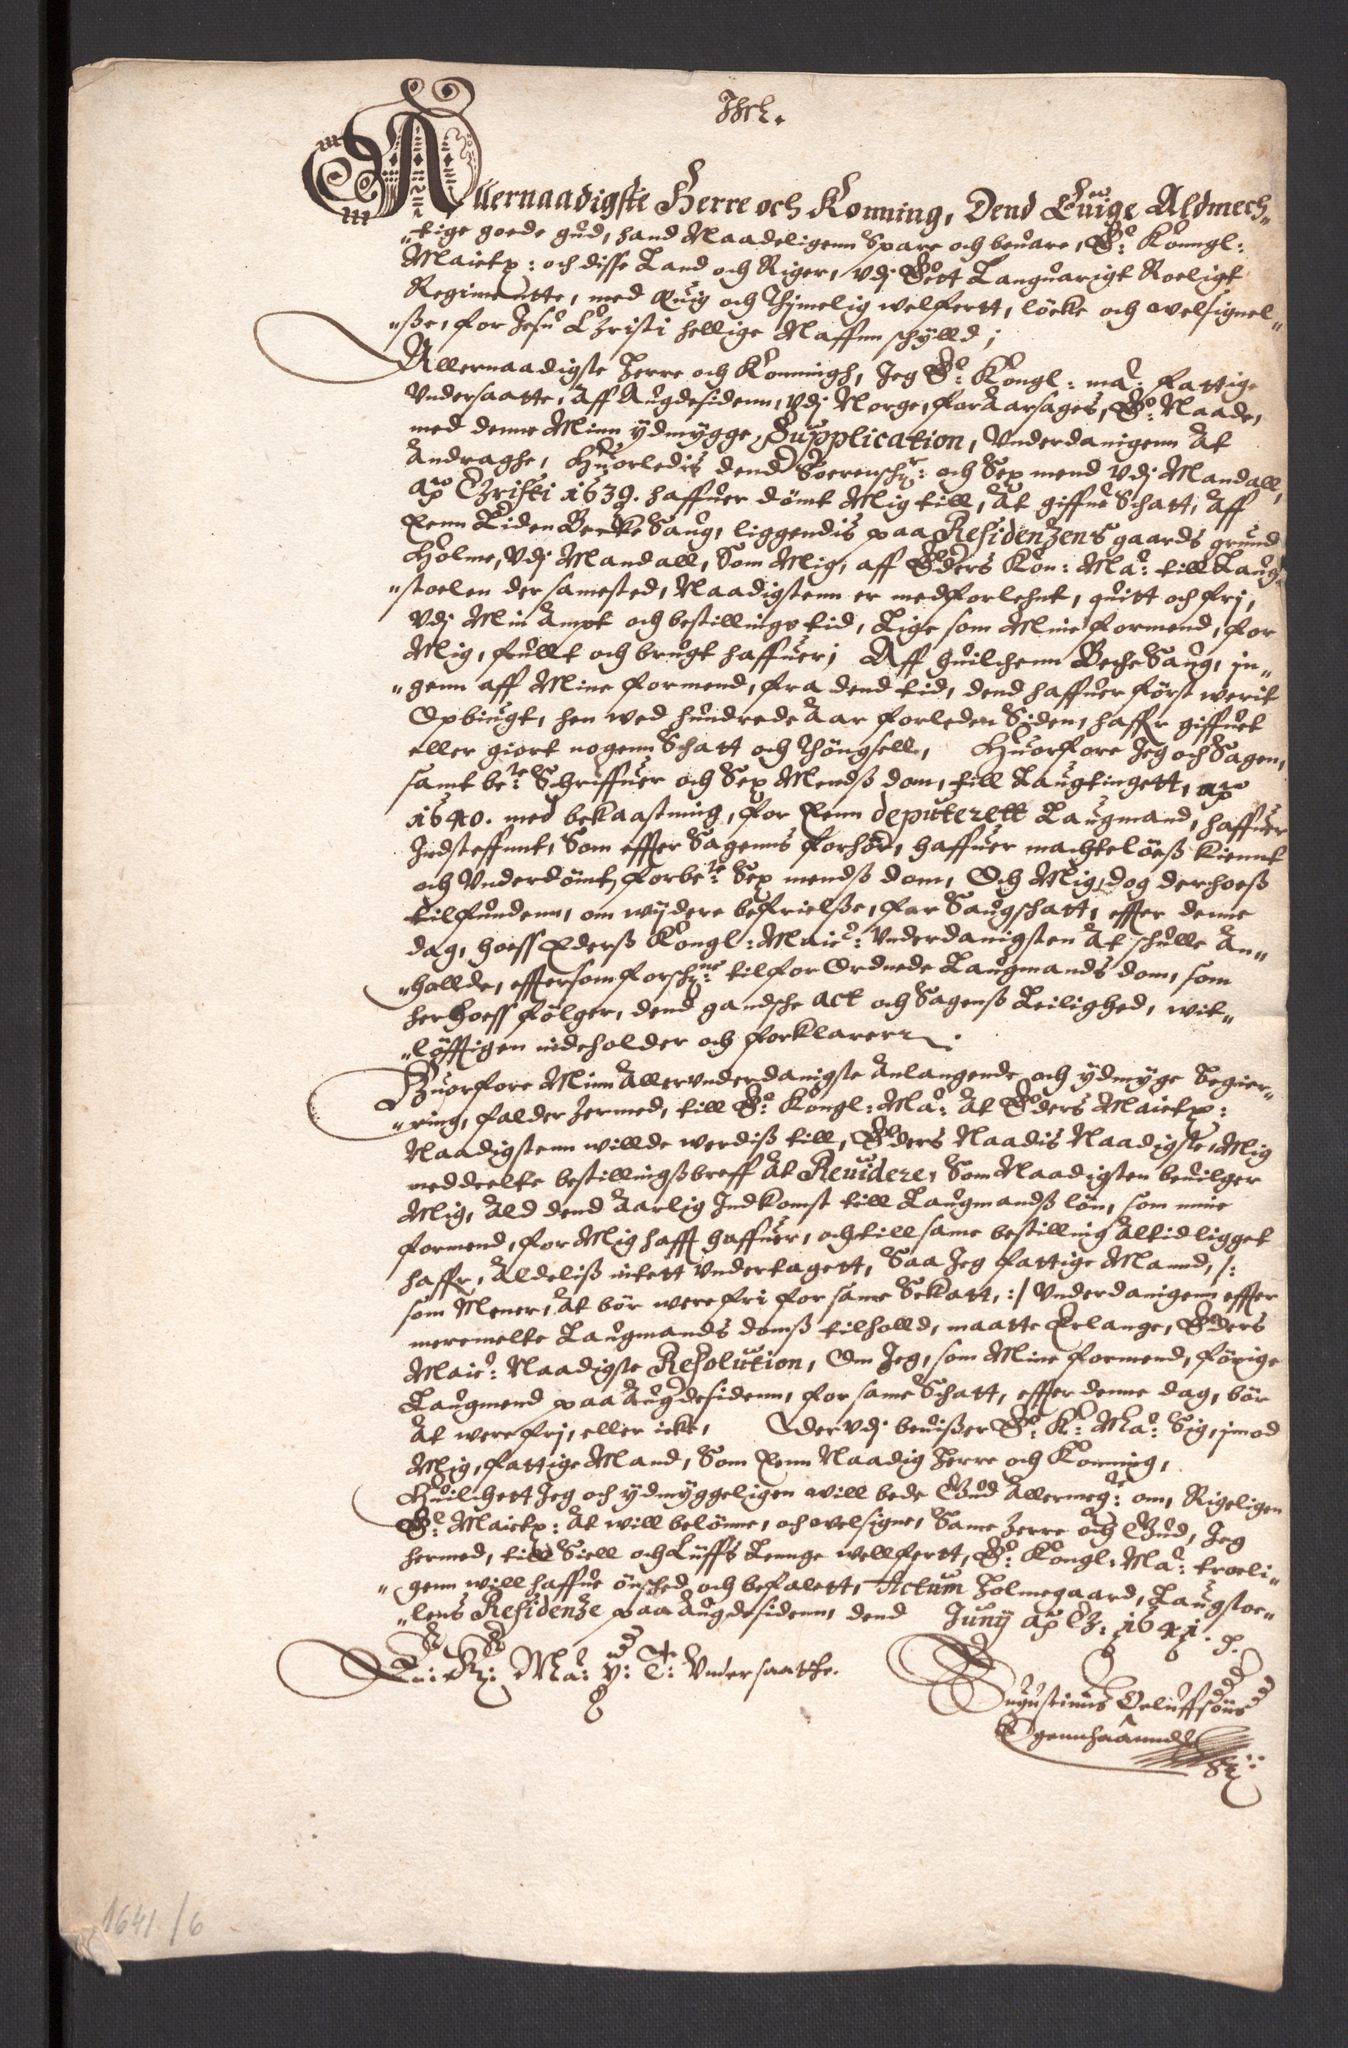 Jhs.
Allernaadigste Herre och Konning, Dend Euige Aldmech-
-tige goede gud, hand Naadeligenn Spare och beuare, E: Kongl:
Maietz: och disse Land och Riger, vdj Sett Languarigt Roeligt
Regimentte, med Euig och Thymelig welfertt, löcke och welsignel-
-sse, for Jesu Christi hellige Naffnn schylld;
Allernaadigste Herre och Konningh, Jeg E: Kongl: ma: fattige
Vndersaatte, Aff Augdesidenn, vdj Norge, forAarsages, E: Naade,
med denne Minn ydmygge Supplication, Vnderdanigenn At
Andraghe, Huorledis dend Soerenschr: och Sex mend vdj Mandall,
ao Christi 1639. haffuer dömt Mig till, At giffue Schatt, Aff
Een Liden Becke Saug, liggendis paa Residenzens gaards grund
Holme, vdj Mandall, Som Mig, aff Eders Kon: Ma: till Laug-
-stoelen der samested, Naadigstenn er medforlehnt, quitt och frj,
Vdj Min Ampt och bestillings tid, Lige som Mine formend, for
Mig, fullt och brugt haffuer; Aff huilchenn Beche Saug, in-
-genn aff Mine formend, fra dend tid, dend haffuer först werit
Opbiugt, hen wed hundrede Aar forleden Siden, haffr giffuet
eller giort nogenn Schatt och Thöngsell, Huorfore Jeg och Sagen,
samt bete: Schriffuer och Sex Mendss dom, till Laugtingett, ao
1640. med bekaastning, for Een deputerett Laugmand, haffuer
Indsteffnnt, Som effter Sagenns forhör, haffuer machtelöess kiennt
och Vnderdömt, forbete: Sex mendss dom, Och Mig, dog derhoess
tilfundenn, om wydere befrielsse, for Saugschatt, effter denne
dag, hoess Ederss Kongl: Maie: Vnderdanigsten At schulle An-
-hollde, effttersom forschne: tilforOrdnede Laugmands dom, som
herhoess fölger, dend gandsche act och Sagenss Leilighed, wit-
-löfftigen indeholder och forklarer.
Huorfore Minn Allervnderdanigste Anlangende och ydmyge begier-
-ring, falder hermed, till E: Kongl: Ma: At Eders Maietz:
Naadigstenn willde werdiss till, Eders Naadis Naadigste, Mig
meddeelte bestillingssbreff At Reuidere, Som Naadigsten beuilger
Mig, Ald dend Aarlig Indkomst till Laugmandss lön, som mine
formend, for Mig hafft haffuer, och till same bestilling Altid ligget
haffr, Aldeliss intett Vndertagett, Saa Jeg fattige Mannd, /:
som Mener, At bör were fri for same Schatt, :/ Vnderdanigenn effter
mermelte Laugmands domss tilholld, maatte Erlange, Eders
Maie: Naadigste Resolution, Om Jeg, som Mine formend, forige
Laugmend paa Augdesidenn, for same Schatt, effter denne dag, bör
At were frj, eller icke, Der vdj beuisser E: K: Ma: Sig, imod
Mig, fattige Mand, Som Een Naadig Herre och Konning,
Huilchett Jeg och ydmyggeligen will bede Gud Allermeg: om, Rigeligen
E: Maietz: At will belönne, och welsigne, Same Herre och Gud, Jeg
hermed, till Siell och Liffs Lennge wellfertt, E: Kongl: Ma: troeli-
-genn will haffue önsched och befalett, Actum Holmegaard, Laugstoe-
-lens Residenze paa Augdesidenn, dend Juny ao Ch: 1641.
E: K: Ma: V: T: Vndersaatthe.
Augustinus Oeluffsöns
Egennhaannd
1641 /6